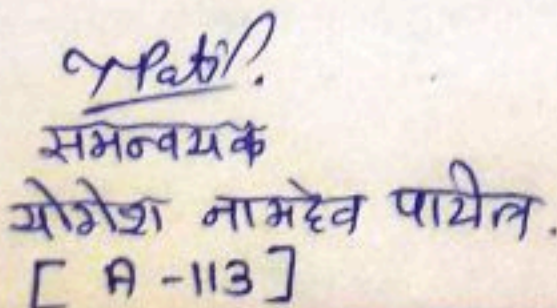 YPatil.
समन्वयक
योगेश नामदेव पाटील.
[ A -113 ]